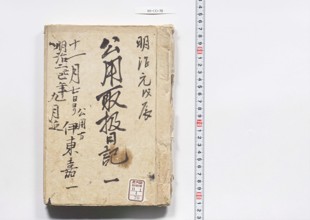 明治元以辰
公用取扱日記 一
十一月七日ゟ 公用方
伊東嘉一
明治二巳年九月迄